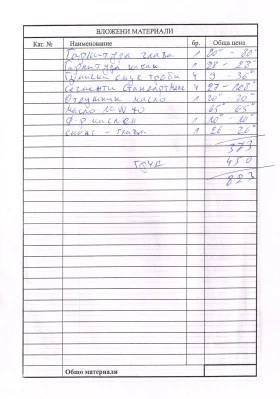 ВЛОЖЕНИ МАТЕРИАЛИ
Кат. № Наименование бр. Обща цена
Гарнитура глава 1 80 - 80
Гарнитура капак 1 28 - 28
Гумички смук. тръби 4 9 - 36
Сегменти стандартни 4 27 - 108
Отдушник масло 1 20 - 20
Масло 10W40 65 - 65
Ф-р маслен 1 10 - 10
глава 1 26 26
373
Труд 450
823
Общо материали